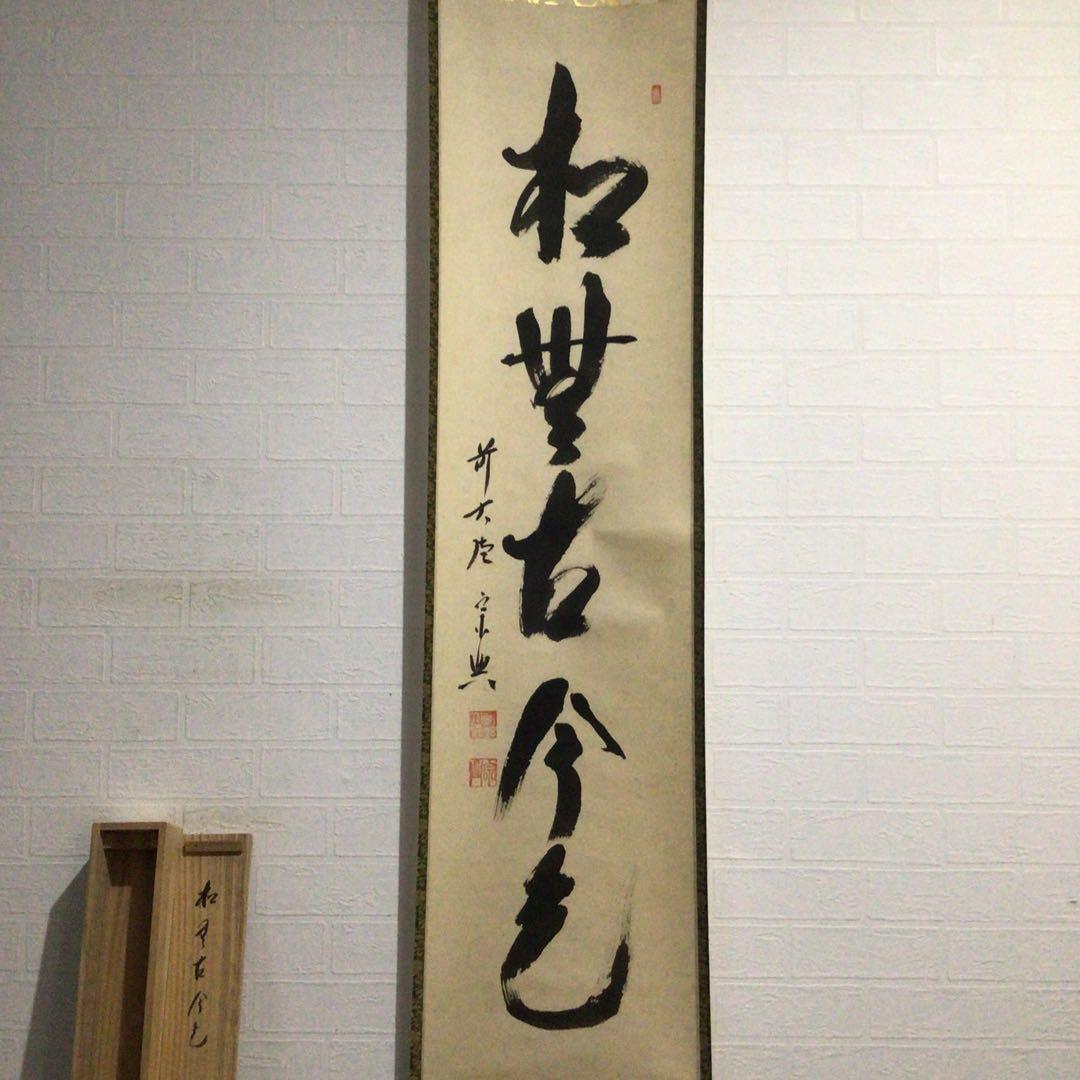 松無古今色
前大徳 宗典
松無古今色